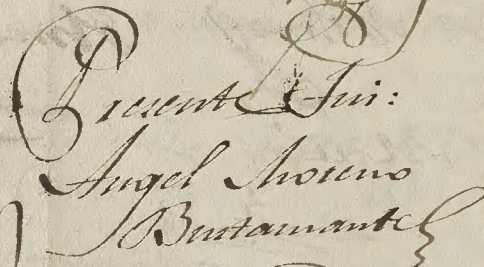 Presente Fui:
Angel Moreno
Bustamante